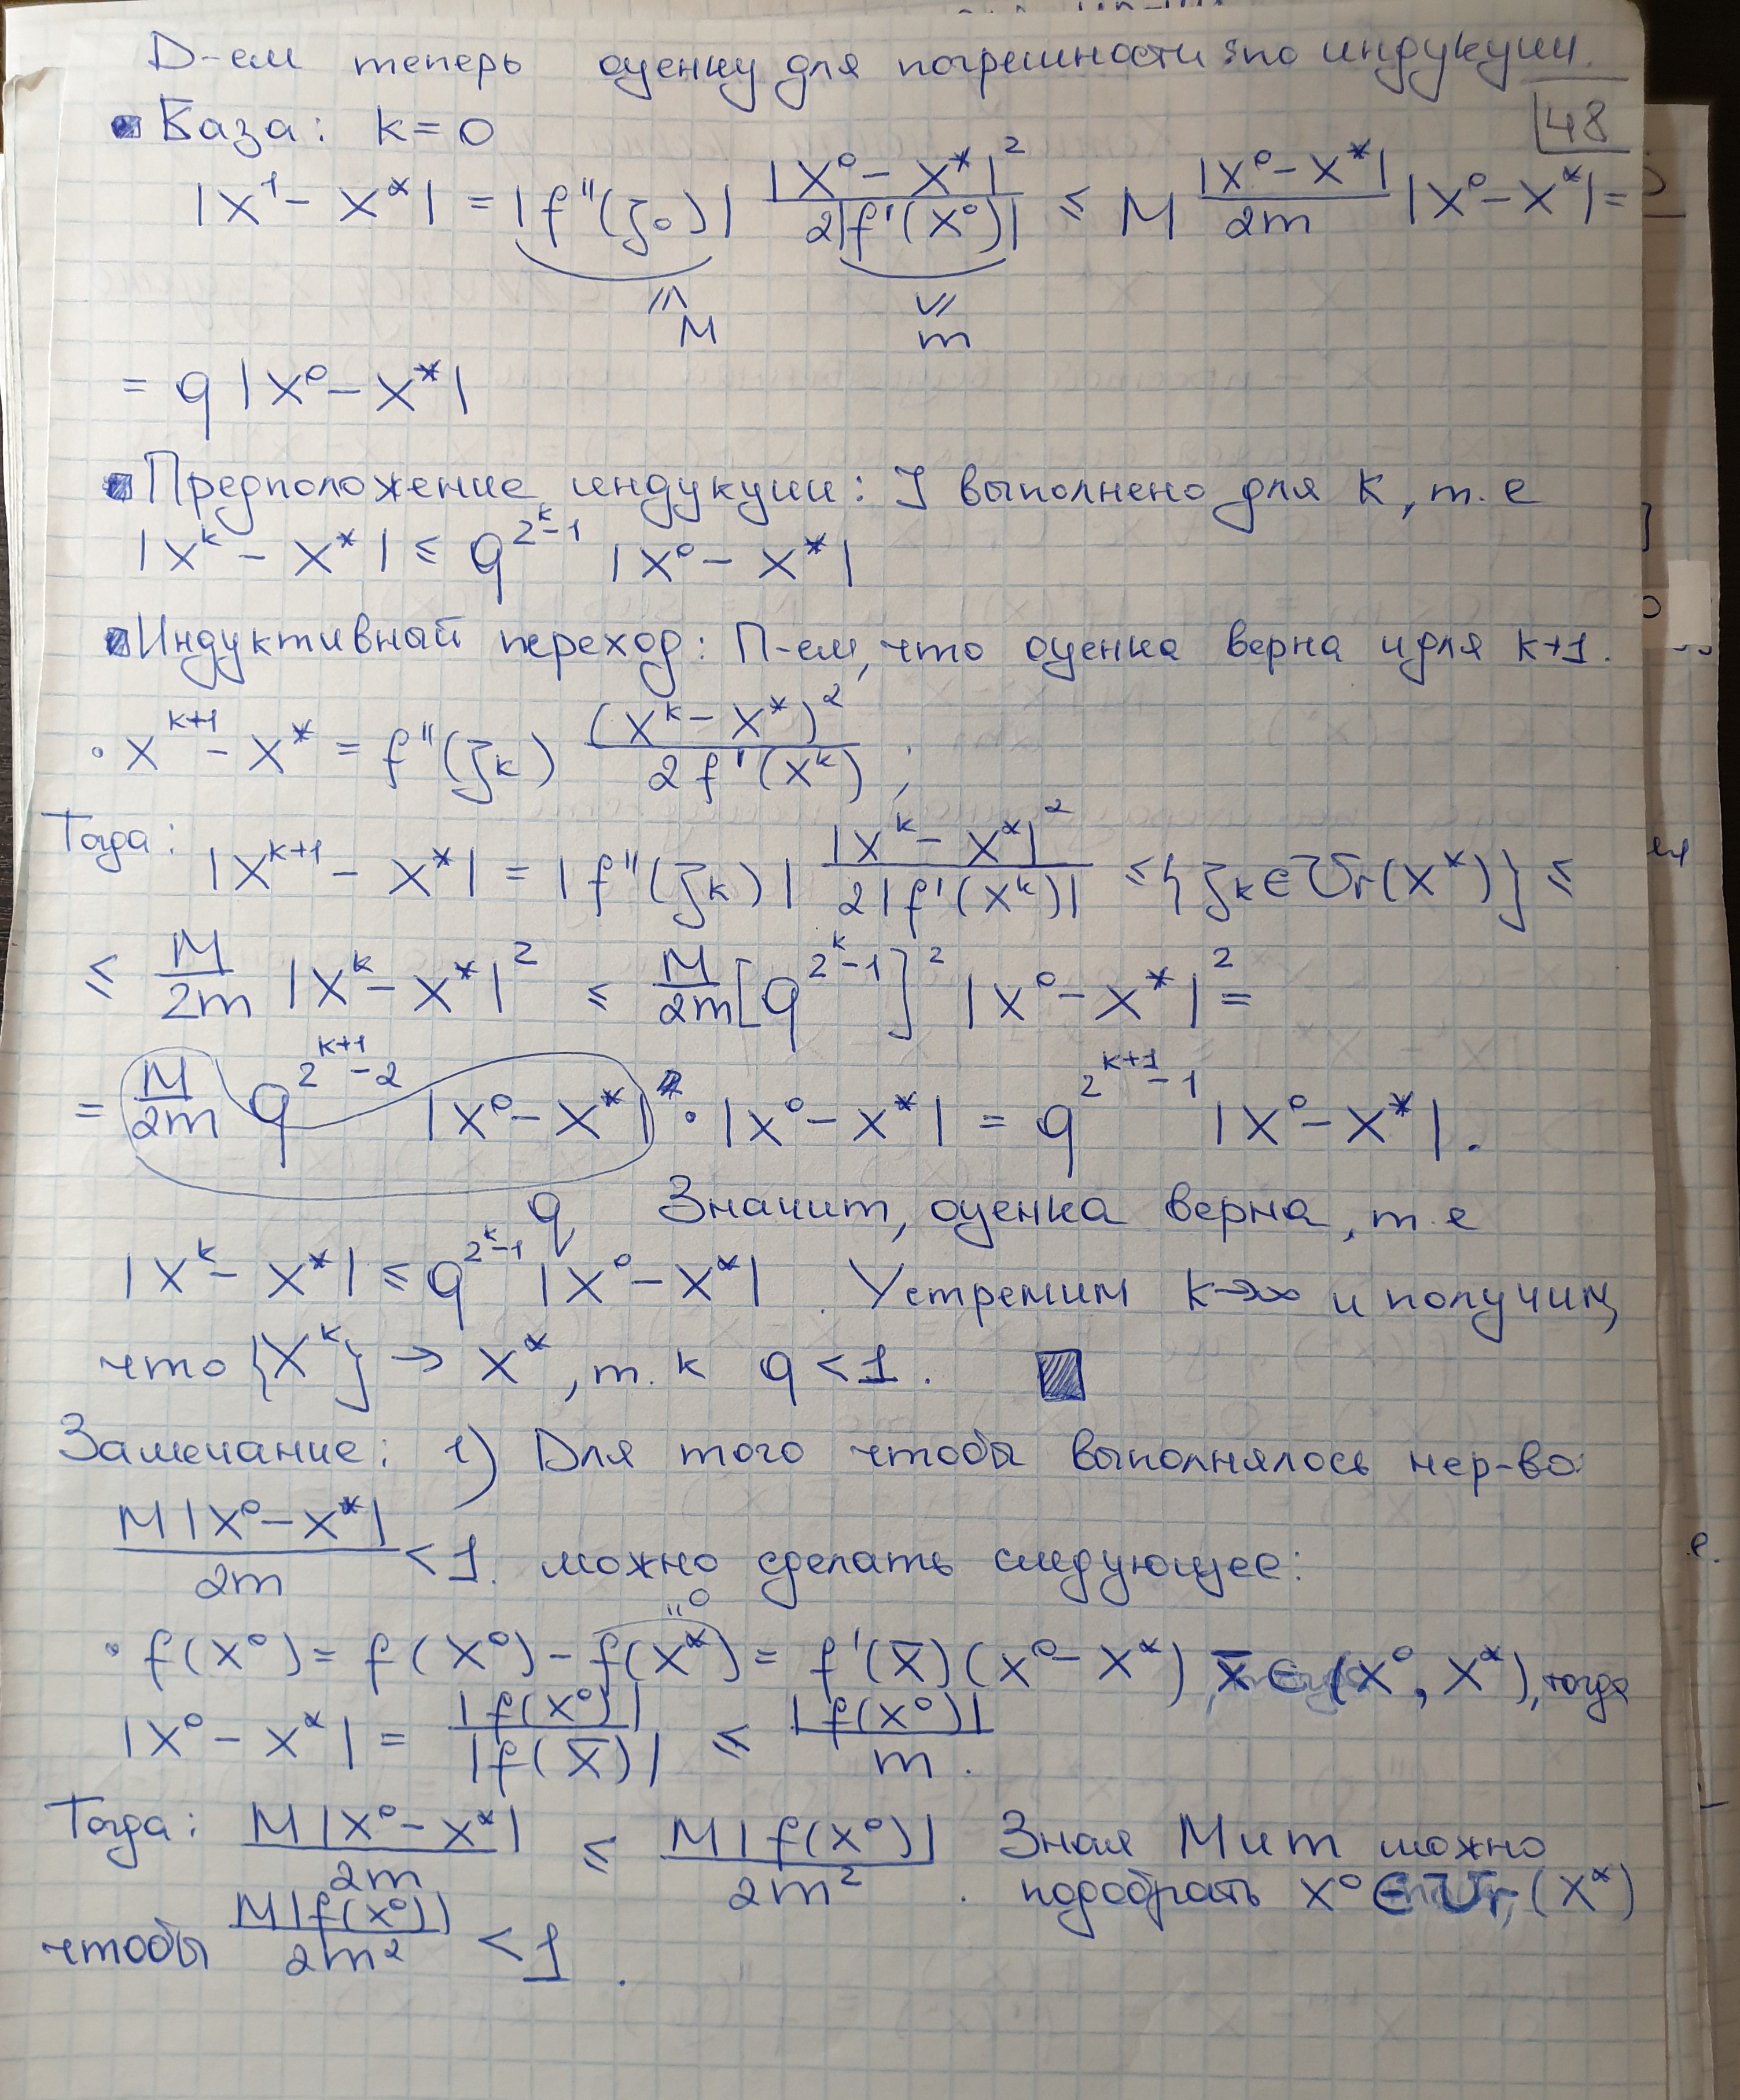 Д-ем теперь оценку для погрешности по индукции.
48
База: k = 0
|x¹ - x*| = |f''(ζ₀)| |x⁰ - x*|² / 2|f'(x⁰)| ≤ M |x⁰ - x*| / 2m |x⁰ - x*| =
≤ M ≥ m
= q |x⁰ - x*|
Предположение индукции: ] выполнено для k, т.е
|x^k - x*| ≤ q^(2^k - 1) |x⁰ - x*|
Индуктивный переход: П-ем, что оценка верна и для k+1.
• x^(k+1) - x* = f''(ζk) (x^k - x*)² / 2f'(x^k) ;
Тогда: |x^(k+1) - x*| = |f''(ζk)| |x^k - x*|² / 2|f'(x^k)| ≤ {ζk ∈ Ur(x*)} ≤
≤ M/2m |x^k - x*|² ≤ M/2m [q^(2^k - 1)]² |x⁰ - x*|² =
= M/2m q^(2^(k+1) - 2) |x⁰ - x*| • |x⁰ - x*| = q^(2^(k+1) - 1) |x⁰ - x*|.
q Значит, оценка верна, т.е
|x^k - x*| ≤ q^(2^k - 1) |x⁰ - x*|. Устремим k→∞ и получим,
что {x^k} → x*, т.к q < 1.
Замечание: 1) Для того чтобы выполнялось нер-во:
M|x⁰ - x*| / 2m < 1. можно сделать следующее:
• f(x⁰) = f(x⁰) - f(x*) = f'(x̄)(x⁰ - x*) x̄ ∈ (x⁰, x*), тогда
"0
|x⁰ - x*| = |f(x⁰)| / |f(x̄)| ≤ |f(x⁰)| / m.
Тогда: M|x⁰ - x*| / 2m ≤ M|f(x⁰)| / 2m². Зная M и m можно
подобрать x⁰ ∈ Ur(x*)
чтобы M|f(x⁰)| / 2m² < 1.